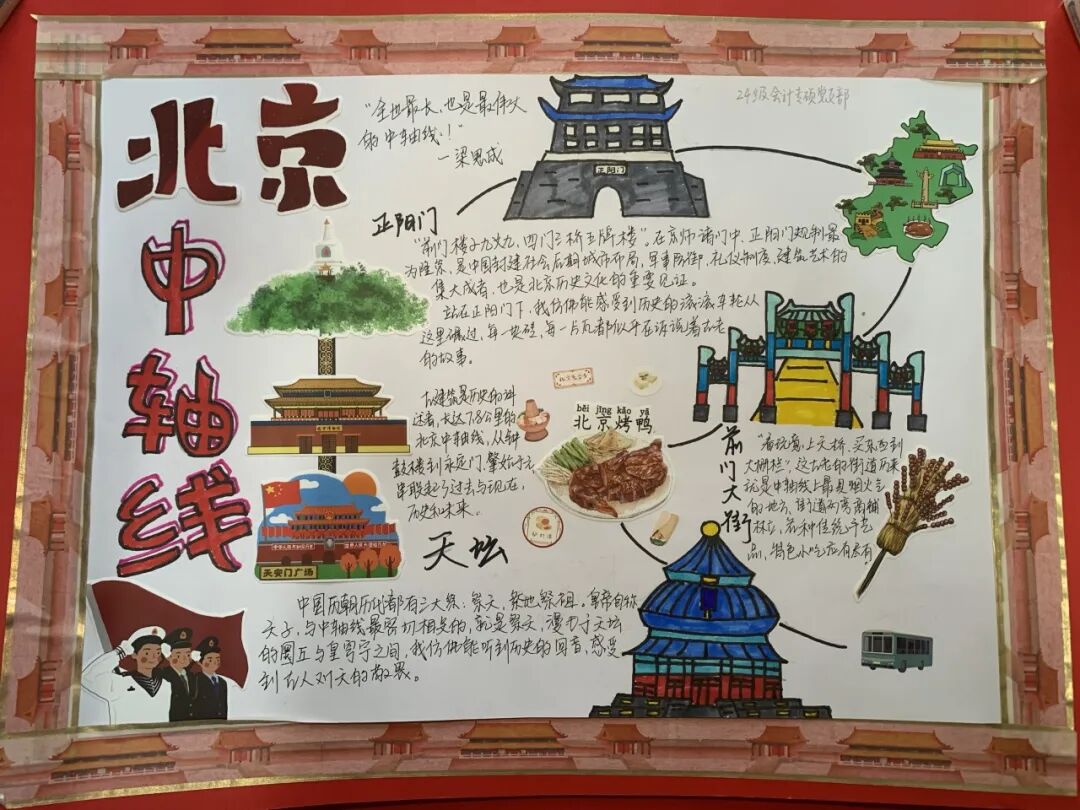 北京
中
轴
线
"全世最长,也是最伟大
的中轴线!"
—梁思成
正阳门
正阳门
"前门楼子九丈九,四门三桥五牌楼"。在京师诸门中,正阳门规制最
为隆崇,是中国封建社会后期城市布局,军事防御,礼仪制度,建筑艺术的
集大成者,也是北京历史文化的重要见证。
站在正阳门下,我仿佛能感受到历史的滚滚车轮从
这里碾过,每一块砖,每一片瓦都似乎在诉说着古老
的故事。
建筑是历史的讲
述者,长达7.8公里的
北京中轴线,从钟
鼓楼到永定门,肇始于元
串联起了过去与现在,
历史和未来。
běi jīng kǎo yā
北京烤鸭
前门大街
"看玩意上天桥,买东西到
大栅栏",这古老的街道历来
就是中轴线上最具烟火气
的地方,街道两旁商铺
林立,各种传统手艺
品,特色小吃应有尽有
天安门广场
天坛
中国历朝历代都有三大祭:祭天,祭地祭祖。皇帝自称
天子,与中轴线最密切相关的,就是祭天,漫步于天坛
的圜丘与皇穹宇之间,我仿佛能听到历史的回音,感受
到古人对天的敬畏。